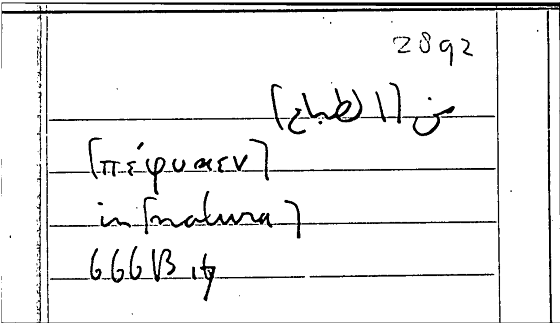 2892
من [الطباع]
[πέφυκεν]
in [natura]
666B 14